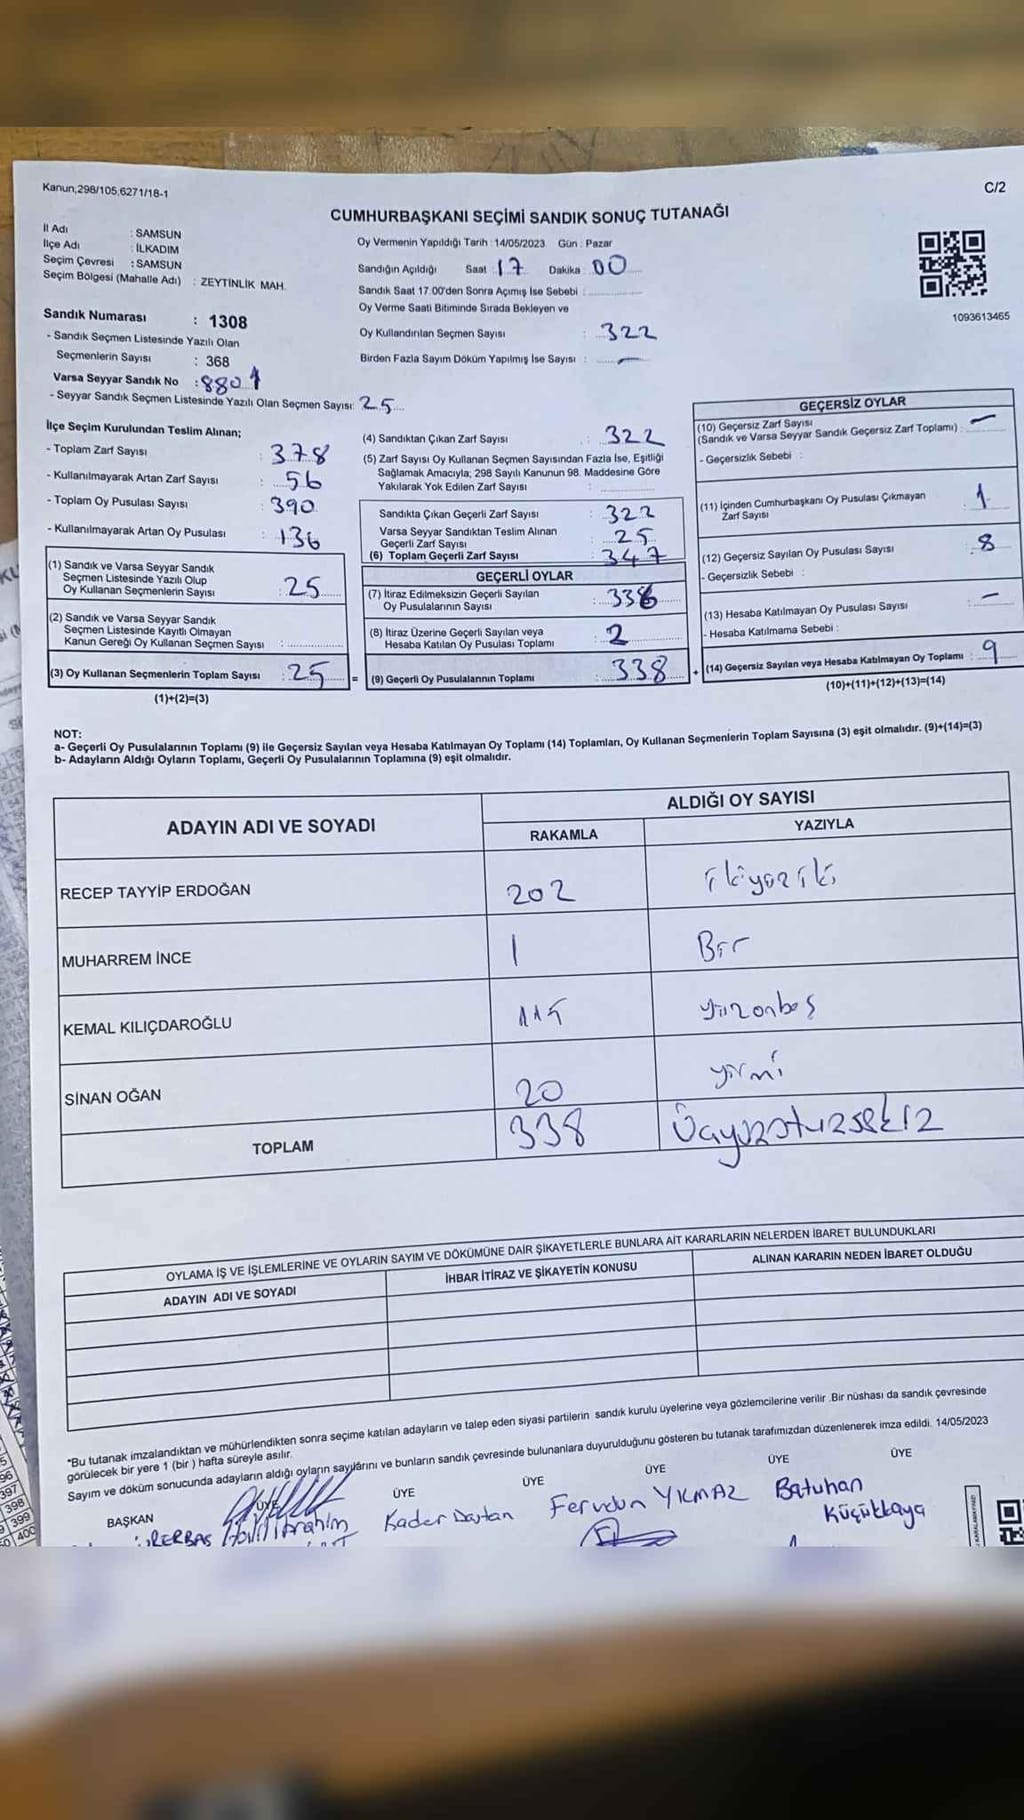 Kanun;298/105,6271/18-1
C/2
CUMHURBAŞKANI SEÇİMİ SANDIK SONUÇ TUTANAĞI
İl Adı : SAMSUN
İlçe Adı : İLKADIM
Seçim Çevresi : SAMSUN
Seçim Bölgesi (Mahalle Adı) : ZEYTİNLİK MAH.
Oy Vermenin Yapıldığı Tarih : 14/05/2023 Gün : Pazar
Sandığın Açıldığı Saat : 17 Dakika : 00
Sandık Saat 17.00'den Sonra Açımış İse Sebebi :
Oy Verme Saati Bitiminde Sırada Bekleyen ve
Oy Kullandırılan Seçmen Sayısı : 322
Birden Fazla Sayım Döküm Yapılmış İse Sayısı : —
1093613465
Sandık Numarası : 1308
- Sandık Seçmen Listesinde Yazılı Olan
Seçmenlerin Sayısı : 368
Varsa Seyyar Sandık No : 8801
- Seyyar Sandık Seçmen Listesinde Yazılı Olan Seçmen Sayısı: 25
İlçe Seçim Kurulundan Teslim Alınan;
- Toplam Zarf Sayısı : 378
- Kullanılmayarak Artan Zarf Sayısı : 56
- Toplam Oy Pusulası Sayısı : 390
- Kullanılmayarak Artan Oy Pusulası : 136
(1) Sandık ve Varsa Seyyar Sandık
Seçmen Listesinde Yazılı Olup
Oy Kullanan Seçmenlerin Sayısı : 25
(2) Sandık ve Varsa Seyyar Sandık
Seçmen Listesinde Kayıtlı Olmayan
Kanun Gereği Oy Kullanan Seçmen Sayısı :
(3) Oy Kullanan Seçmenlerin Toplam Sayısı : 25 =
(1)+(2)=(3)
(4) Sandıktan Çıkan Zarf Sayısı : 322
(5) Zarf Sayısı Oy Kullanan Seçmen Sayısından Fazla İse, Eşitliği
Sağlamak Amacıyla; 298 Sayılı Kanunun 98. Maddesine Göre
Yakılarak Yok Edilen Zarf Sayısı :
Sandıkta Çıkan Geçerli Zarf Sayısı : 322
Varsa Seyyar Sandıktan Teslim Alınan
Geçerli Zarf Sayısı : 25
(6) Toplam Geçerli Zarf Sayısı : 347
GEÇERLİ OYLAR
(7) İtiraz Edilmeksizin Geçerli Sayılan
Oy Pusulalarının Sayısı : 336
(8) İtiraz Üzerine Geçerli Sayılan veya
Hesaba Katılan Oy Pusulası Toplamı : 2
(9) Geçerli Oy Pusulalarının Toplamı : 338 +
GEÇERSİZ OYLAR
(10) Geçersiz Zarf Sayısı
(Sandık ve Varsa Seyyar Sandık Geçersiz Zarf Toplamı) : —
- Geçersizlik Sebebi :
(11) İçinden Cumhurbaşkanı Oy Pusulası Çıkmayan
Zarf Sayısı : 1
(12) Geçersiz Sayılan Oy Pusulası Sayısı : 8
- Geçersizlik Sebebi :
(13) Hesaba Katılmayan Oy Pusulası Sayısı : —
- Hesaba Katılmama Sebebi :
(14) Geçersiz Sayılan veya Hesaba Katılmayan Oy Toplamı : 9
(10)+(11)+(12)+(13)=(14)
NOT:
a- Geçerli Oy Pusulalarının Toplamı (9) ile Geçersiz Sayılan veya Hesaba Katılmayan Oy Toplamı (14) Toplamları, Oy Kullanan Seçmenlerin Toplam Sayısına (3) eşit olmalıdır. (9)+(14)=(3)
b- Adayların Aldığı Oyların Toplamı, Geçerli Oy Pusulalarının Toplamına (9) eşit olmalıdır.
ADAYIN ADI VE SOYADI
ALDIĞI OY SAYISI
RAKAMLA YAZIYLA
RECEP TAYYİP ERDOĞAN 202 ikiyüziki
MUHARREM İNCE 1 Bir
KEMAL KILIÇDAROĞLU 115 yüzonbeş
SİNAN OĞAN 20 yirmi
TOPLAM 338 Üçyüzotuzsekiz
OYLAMA İŞ VE İŞLEMLERİNE VE OYLARIN SAYIM VE DÖKÜMÜNE DAİR ŞİKAYETLERLE BUNLARA AİT KARARLARIN NELERDEN İBARET BULUNDUKLARI
ADAYIN ADI VE SOYADI İHBAR İTİRAZ VE ŞİKAYETİN KONUSU ALINAN KARARIN NEDEN İBARET OLDUĞU
*Bu tutanak imzalandıktan ve mühürlendikten sonra seçime katılan adayların ve talep eden siyasi partilerin sandık kurulu üyelerine veya gözlemcilerine verilir .Bir nüshası da sandık çevresinde
görülecek bir yere 1 (bir ) hafta süreyle asılır.
Sayım ve döküm sonucunda adayların aldığı oyların sayılarını ve bunların sandık çevresinde bulunanlara duyurulduğunu gösteren bu tutanak tarafımızdan düzenlenerek imza edildi. 14/05/2023
BAŞKAN ÜYE ÜYE ÜYE ÜYE ÜYE ÜYE
Halil İbrahim Kader Dartan Ferudun YILMAZ Batuhan
Küçükkaya
397
398
399
400